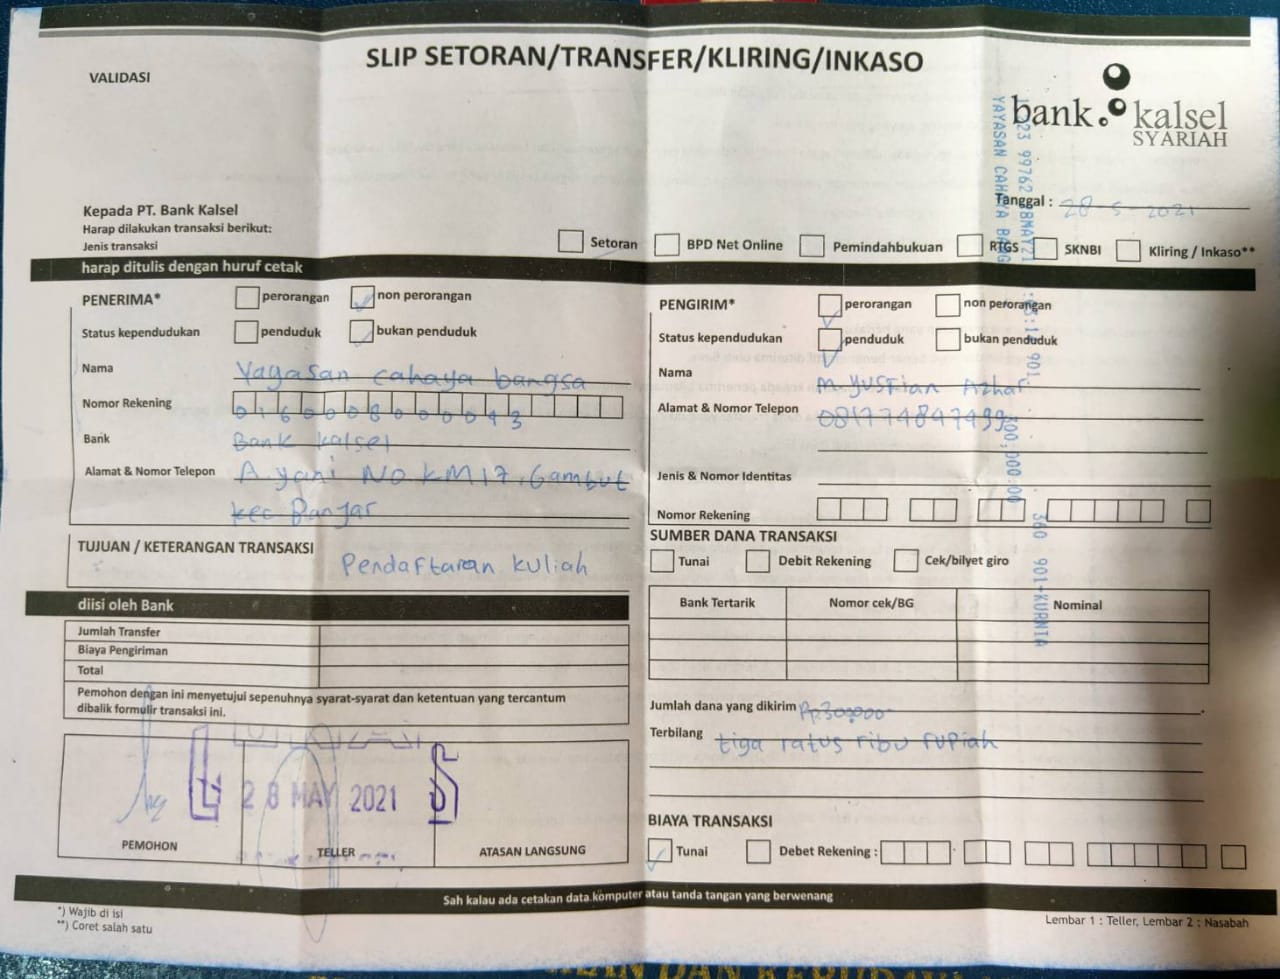 SLIP SETORAN/TRANSFER/KLIRING/INKASO
VALIDASI
bank kalsel
SYARIAH
Tanggal : 28-5-2021
Kepada PT. Bank Kalsel
Harap dilakukan transaksi berikut:
Jenis transaksi
Setoran BPD Net Online Pemindahbukuan RTGS SKNBI Kliring / Inkaso**
harap ditulis dengan huruf cetak
PENERIMA* perorangan non perorangan
Status kependudukan penduduk bukan penduduk
Nama Yayasan cahaya bangsa
Nomor Rekening
Bank Bank kalsel
Alamat & Nomor Telepon A. yani No KM 17. Gambut
kec Banjar
TUJUAN / KETERANGAN TRANSAKSI Pendaftaran kuliah
diisi oleh Bank
Jumlah Transfer
Biaya Pengiriman
Total
Pemohon dengan ini menyetujui sepenuhnya syarat-syarat dan ketentuan yang tercantum
dibalik formulir transaksi ini.
28 MAY 2021
PEMOHON TELLER ATASAN LANGSUNG
PENGIRIM* perorangan non perorangan
Status kependudukan penduduk bukan penduduk
Nama M. Yustian Azhar
Alamat & Nomor Telepon 081774847499
Jenis & Nomor Identitas
Nomor Rekening
SUMBER DANA TRANSAKSI
Tunai Debit Rekening Cek/bilyet giro
Bank Tertarik Nomor cek/BG Nominal
Jumlah dana yang dikirim Rp300000
Terbilang tiga ratus ribu rupiah
BIAYA TRANSAKSI
Tunai Debet Rekening :
Sah kalau ada cetakan data komputer atau tanda tangan yang berwenang
*) Wajib di isi
**) Coret salah satu
Lembar 1 : Teller, Lembar 2 : Nasabah
360 901-KURNIA